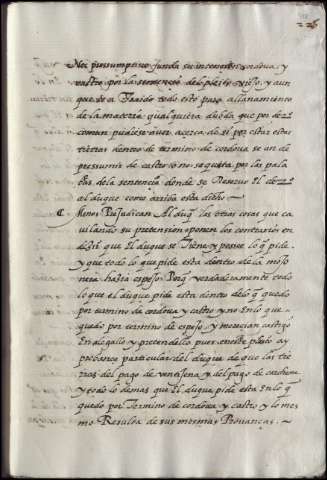 Nez pressumptivo funda su intençion cordova, y
castro por la sentençia del pleito viejo, y aun
que va a traido todo esto para allanamiento
de la materia qualquiera dubda que por derº
comun pudiese aver acerca de si por estar estas
tierras dentro de termino de cordova se an de
pressumir de castro o no se quita por las pala
bras de la sentençia donde se Reserva El
al duque como arriba esta dicho
C Menos Perjudican Al duq las otras cosas que ca
vilando su pretension oponen los contrarios en
dezir que El duque se tiene y possee lo q pide
y que todo lo que pide esta dentro de la mojo
nera hazia espejo. Porq verdaderamente todo
lo que el duque pide esta dentro de lo q quedo
por termino de cordova y castro y no En lo que
quedo por termino de espejo y mereçian castigo
En alegallo y pretendello pues en este pleito ay
probança particular del duque de que las tie
rras del pago de ventosena y del pago de
y todo lo demas que El duque pide esta En lo q
quedo por Termino de cordova y castro y lo mes
mo Resulta de sus mesmas Provanças.